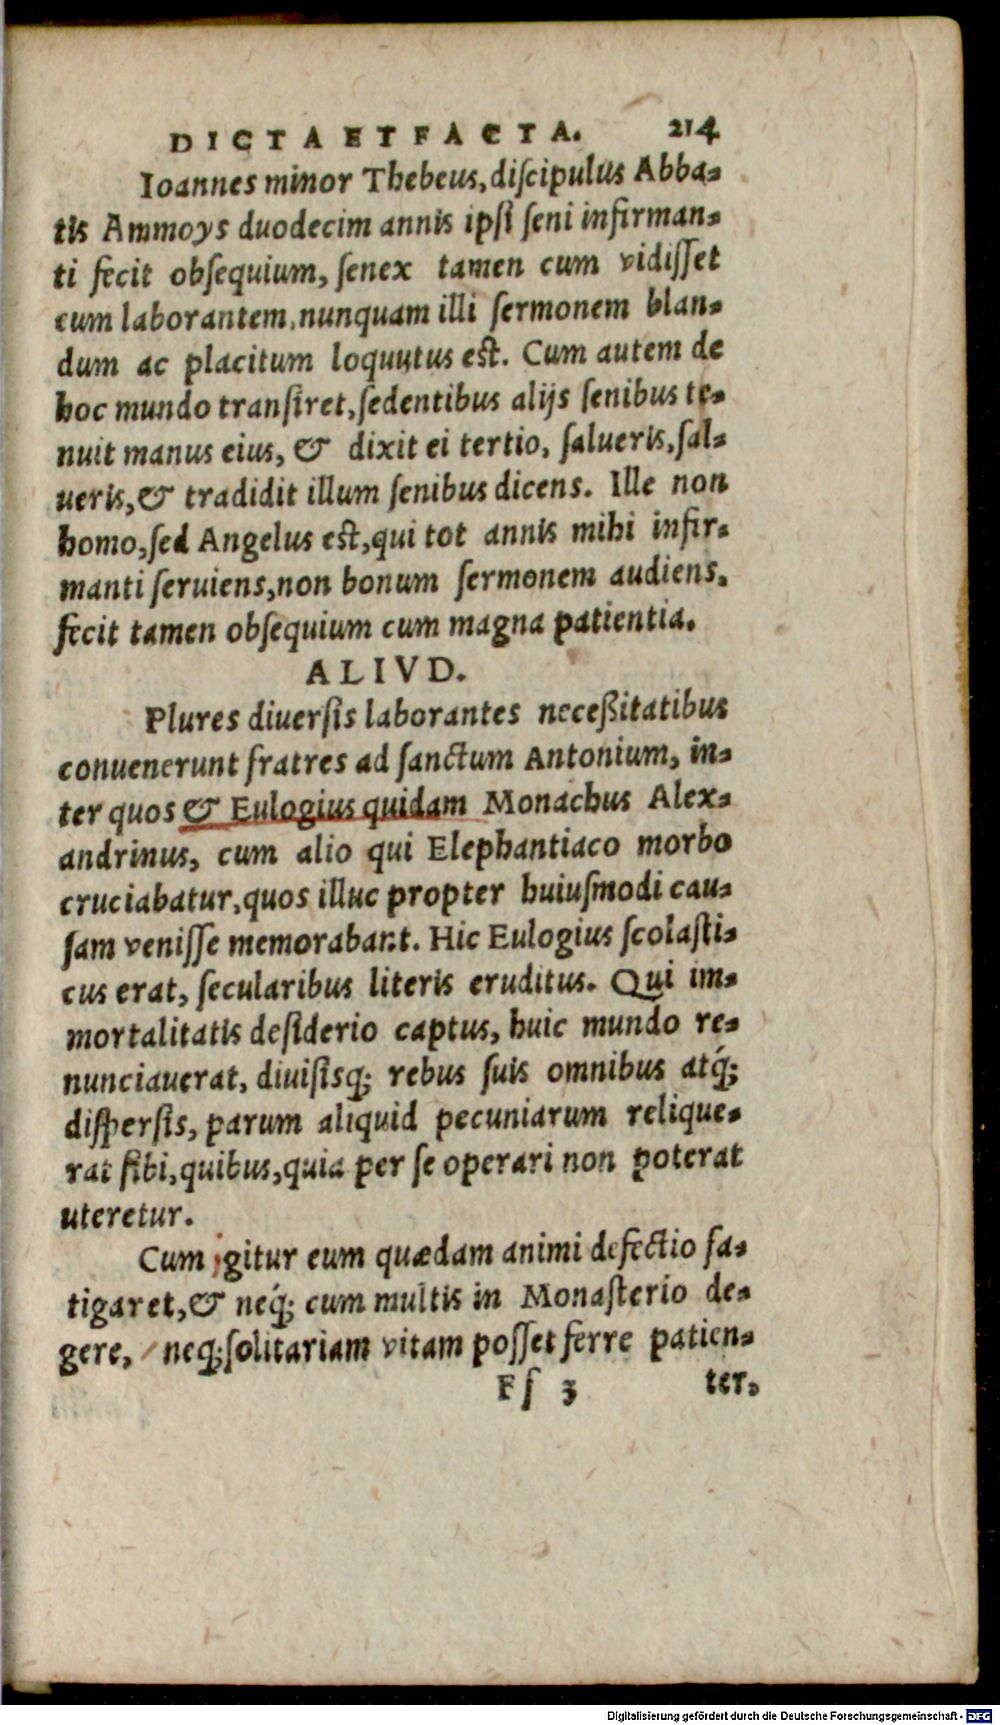 DICTA ET FACTA. 214
Ioannes minor Thebeus, diſcipulus Abba-
tis Ammoys duodecim annis ipſi ſeni infirman-
ti fecit obſequium, ſenex tamen cum vidiſſet
eum laborantem, nunquam illi ſermonem blan-
dum ac placitum loquutus eſt. Cum autem de
hoc mundo tranſiret, ſedentibus alijs ſenibus te-
nuit manus eius, & dixit ei tertio, ſalueris, ſal-
ueris, & tradidit illum ſenibus dicens. Ille non
homo, ſed Angelus eſt, qui tot annis mihi infir-
manti ſeruiens, non bonum ſermonem audiens,
fecit tamen obſequium cum magna patientia.
ALIVD.
Plures diuerſis laborantes neceßitatibus
conuenerunt fratres ad ſanctum Antonium, in-
ter quos & Eulogius quidam Monachus Alex-
andrinus, cum alio qui Elephantiaco morbo
cruciabatur, quos illuc propter huiuſmodi cau-
ſam veniſſe memorabant. Hic Eulogius ſcolaſti-
cus erat, ſecularibus literis eruditus. Qui im-
mortalitatis deſiderio captus, huic mundo re-
nunciauerat, diuiſisq; rebus ſuis omnibus atq́;
diſperſis, parum aliquid pecuniarum relique-
rat ſibi, quibus, quia per ſe operari non poterat
uteretur.
Cum igitur eum quædam animi defectio fa-
tigaret, & neq́; cum multis in Monaſterio de-
gere, neq; ſolitariam vitam poſſet ferre patien-
Fſ 3 ter,
Digitalisierung gefördert durch die Deutsche Forschungsgemeinschaft - DFG